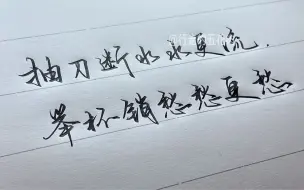 抽刀断水水更流.
举杯销愁愁更愁